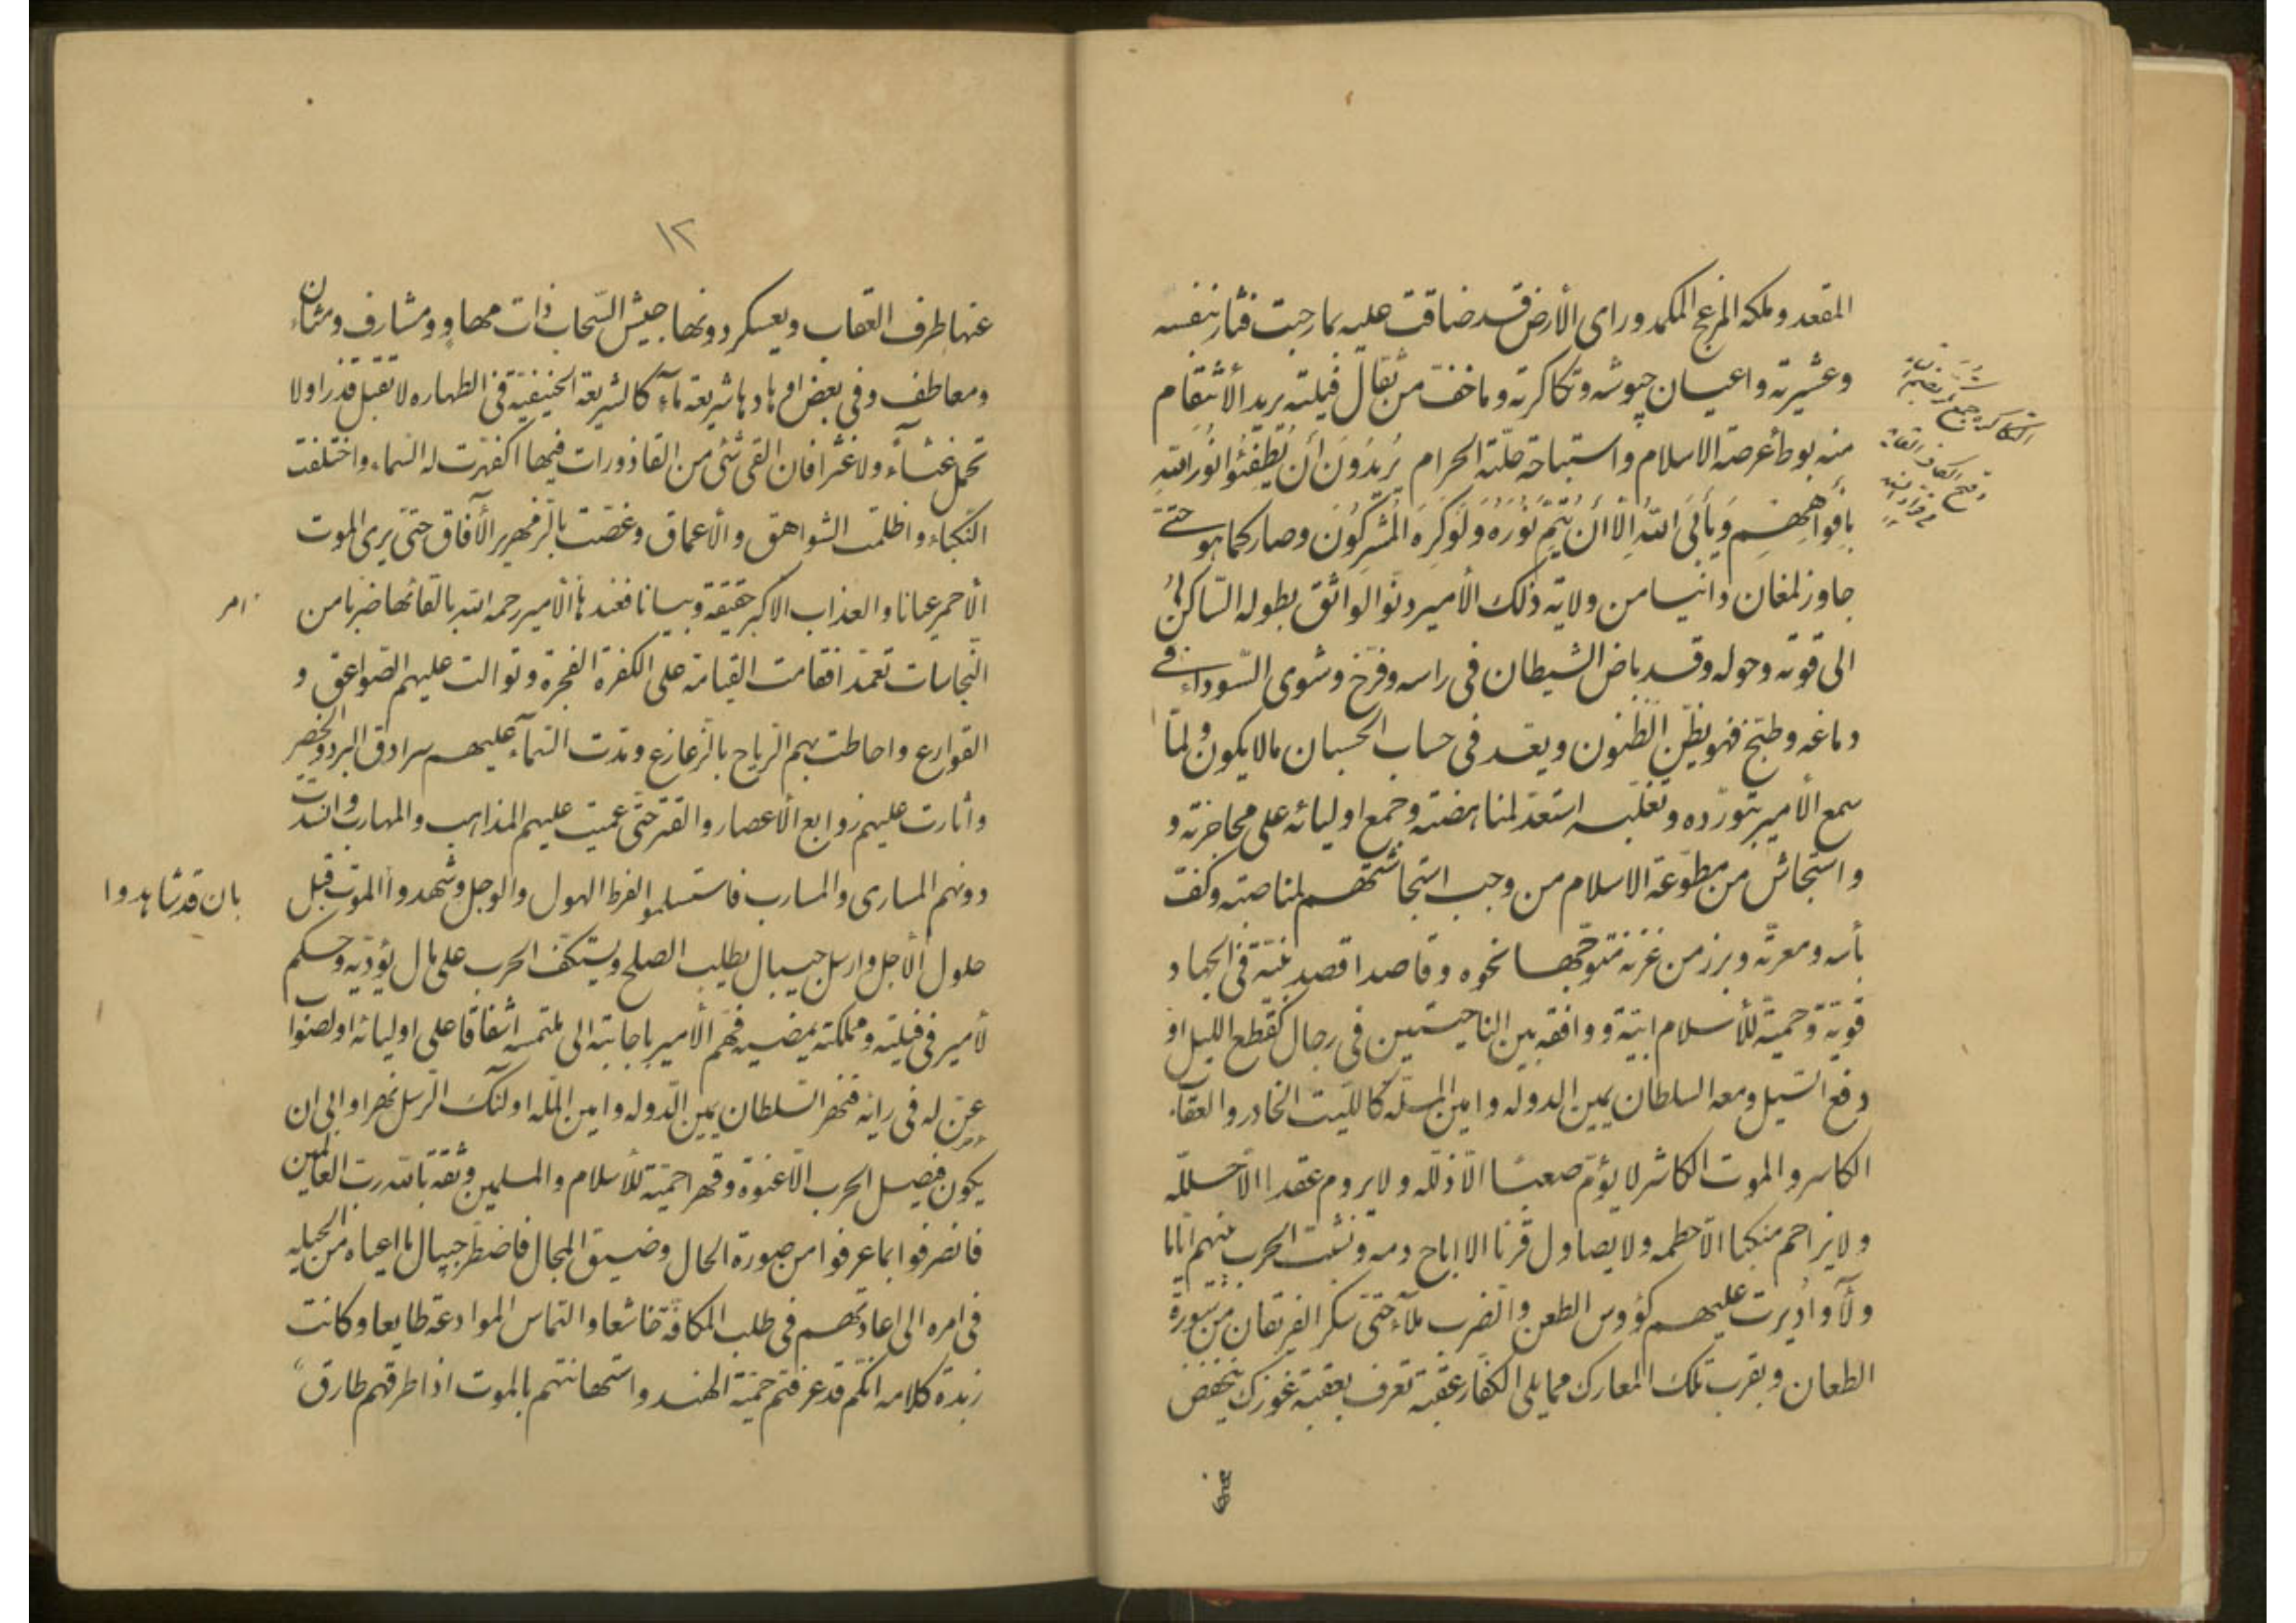 المقعد وملكه المزعج المكمد وراى الأرض قد ضاقت عليه بما رحبت فثار بنفسه
وعشيرته واعيان جيوشه وتكاكرته وما خف من ثقال فيلته يريد الأنتقام
منه بوطأ عرصة الاسلام واستباحة حلّته الحرام يُرِيدُونَ أَن يُطْفِئُوا نُورَ اللّهِ
بِأَفْوَاهِهِمْ وَيَأْبَى اللّهُ إِلَّا أَن يُتِمَّ نُورَهُ وَلَوْ كَرِهَ الْمُشْرِكُونَ وصار كما هو حتى
جاوز لمغان دانيا من ولاية ذلك الأمير دنوّ الواثق بطوله الساكن
الى قوته وحوله وقد باض الشيطان فى راسه وفرّخ وشوى السّوداء فى
دماغه وطبخ فهو يظنّ الظنون ويعد فى حساب الحسبان مالا يكون ولمّا
سمع الأمير بتورّده وتغلّبه استعدّ لمناهضته وجمع اوليائه على محاجزته و
و استجاش من مطوّعة الاسلام من وجب استجاشتهم لمناصبته وكفّ
بأسه ومعرّته وبرز من غزنه متوجّها نحوه وقاصدا قصد نيّة فى الجهاد
قويّة وحميّة للأسلام ابيّة ووافقه بين الناحيتين فى رجال كقطع الليل او
دفع السّيل ومعه السلطان يمين الدوله وامين الملّه كاللّيث الخادر والعقاب
الكاسر والموت الكاشر لا يؤمّ صعبًا الّا ذلّله ولا يروم عقدا الّا حلّله
ولا يزاحم منكبا الّا حطمه ولا يصاول قرنا الا اباح دمه ونشبت الحرب بينهم ايّاما
ولآء وأديرت عليهم كؤوس الطعن والضرب ملآء حتى سكر الفريقان من سورة
الطعان وبقرب تلك المعارك مما يلى الكفّار عقبة تعرف بعقبة غوزك ينخفض
عنها
١٢
عنها طرف العقاب ويعسكر دونها جيش السّحاب ذات مهاوٍ ومشارف ومثان
ومعاطف وفى بعض اوهادها شريعة مآء كالشريعة الحنيفيّة فى الطهاره لا تقبل قذرا ولا
تحمل غثآء ولا غثرا فان القى شئ من القاذورات فيها اكفهرّت له السّماء واختلفت
النّكباء واظلمت الشواهق والاعماق وغصّت بالزّمهرير الآفاق حتى يرى الموت
الأحمر عيانا والعذاب الاكبر حقيقة وبيانا فعندها الأمير رحمه الله بالقائها ضربا من
امر
النّجاسات تعمّدا فقامت القيامة على الكفرة الفجره وتوالت عليهم الصّواعق و
القوارع واحاطت بهم الرّياح بالزّعازع ومدّت السّماء عليهم سرادق البرد والخصر
واثارت عليهم زوابع الأعصار والقتر حتى عميت عليهم المذاهب والمهارب وانسدّت
دونهم المسارى والمسارب فاستسلموا لفرط الهول والوجل وشهدوا الموت قبل
بان قد شاهدوا
حلول الأجل وارسل جيبال يطلب الصلح ويستكفّ الحرب على مال يؤدّيه وحكم
لأمير فى فيلته ومملكته يمضيه فهمّ الأمير باجابته الى ملتمسه اشفاقا على اوليائه اولصنوا
عنّ له فى رايه فنهر السّلطان يمين الدّوله وامين الملّه اولئك الرّسل نهرا وابى ان
يكون فيصل الحرب الّا عنوة وقهرا حميّة للأسلام والمسلمين وثقة بالله ربّ العالمين
فانصرفوا بما عرفوا من صورة الحال وضيق المجال فاضطرّ جيبال لما اعياه من الحيله
فى امره الى اعادتهم فى طلب المكافّة خاشعا والتماس الموادعة طايعا وكانت
زبدة كلامه انّكم قد عرفتم حميّة الهند واستهانتهم بالموت اذا طرقهم طارق